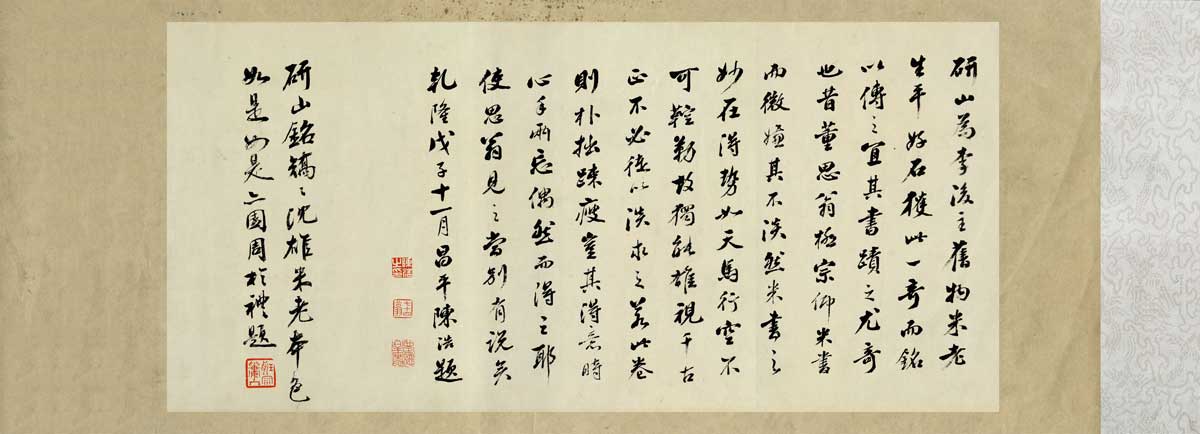 研山為李後主舊物米老
生平好石獲此一奇而銘
以傳之宜其書蹟之尤奇
也昔董思翁極宗仰米書
而微嫌其不淡然米書之
妙在得勢如天馬行空不
可鞚勒故獨能雄視千古
正不必徒以淡求之若此卷
則朴拙疎瘦豈其得意時
心手兩忘偶然而得之耶
使思翁見之當別有說矣
乾隆戊子十一月昌平陳浩題
研山銘矯〻沈雄米老本色
如是如是亦園周於禮題